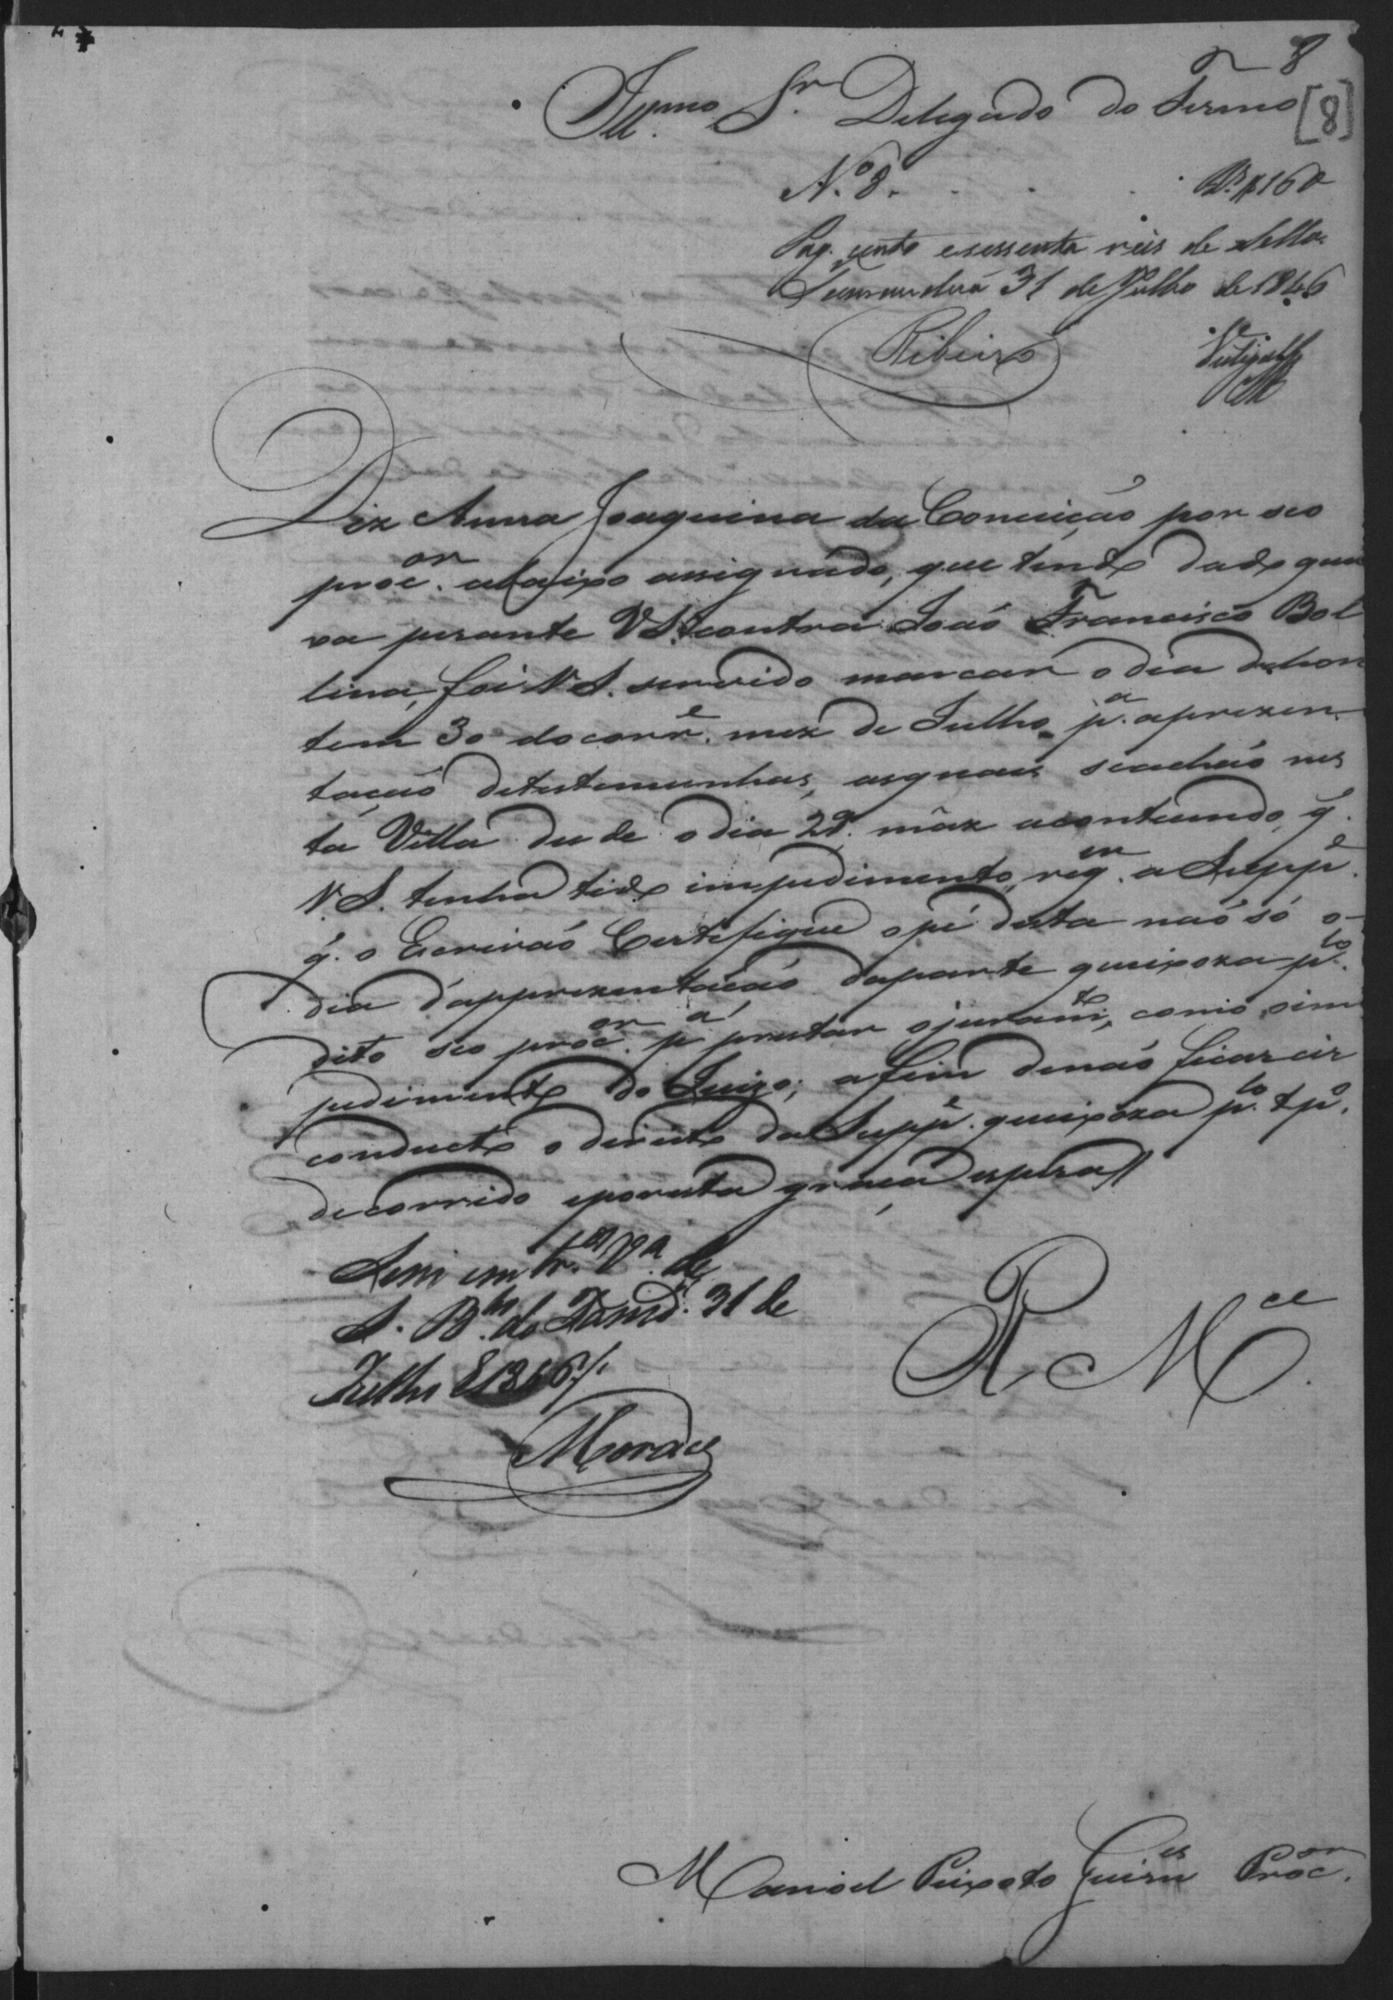 8
Ill.mo Sr. Delegado do Termo [8]
N.º 8. . . . Rs. #160
Pag. cento e sessenta réis de sello.
31 de Julho de 1846
Ribeiro
Diz Anna Joaquina da Conceição, por seo
proc.or abaixo assignado, que tendo dado quei
xa perante V.S. contra João Francisco Bol
lina, foi V.S. servido marcar o dia de hon
tem 30 do corr.e mez de Julho p.a aprezen
tação de testemunhas, as quais se achão nes
ta Villa desde o dia 28. mâz acontecendo q.
V.S. tenha tido impedimento, req.er a Supp.e
q. o Escrivão Certefique o pé desta não só o
dia d'apprezentação da parte queixoza p.lo
dito seo proc.or p.a prestar o juram.to, como o im
pedimento do Juizo; a fim de não ficar cir
conducto o direito da Supp.e queixoza p.lo tp.o
decorrido e por esta graça espera//
Sim em tr.os V.a de
S. B.to do Tamd.á 31 de
Julho de 1846/.
Moraes
R. M.ce
Manoel Peixoto Guim.es Proc.or